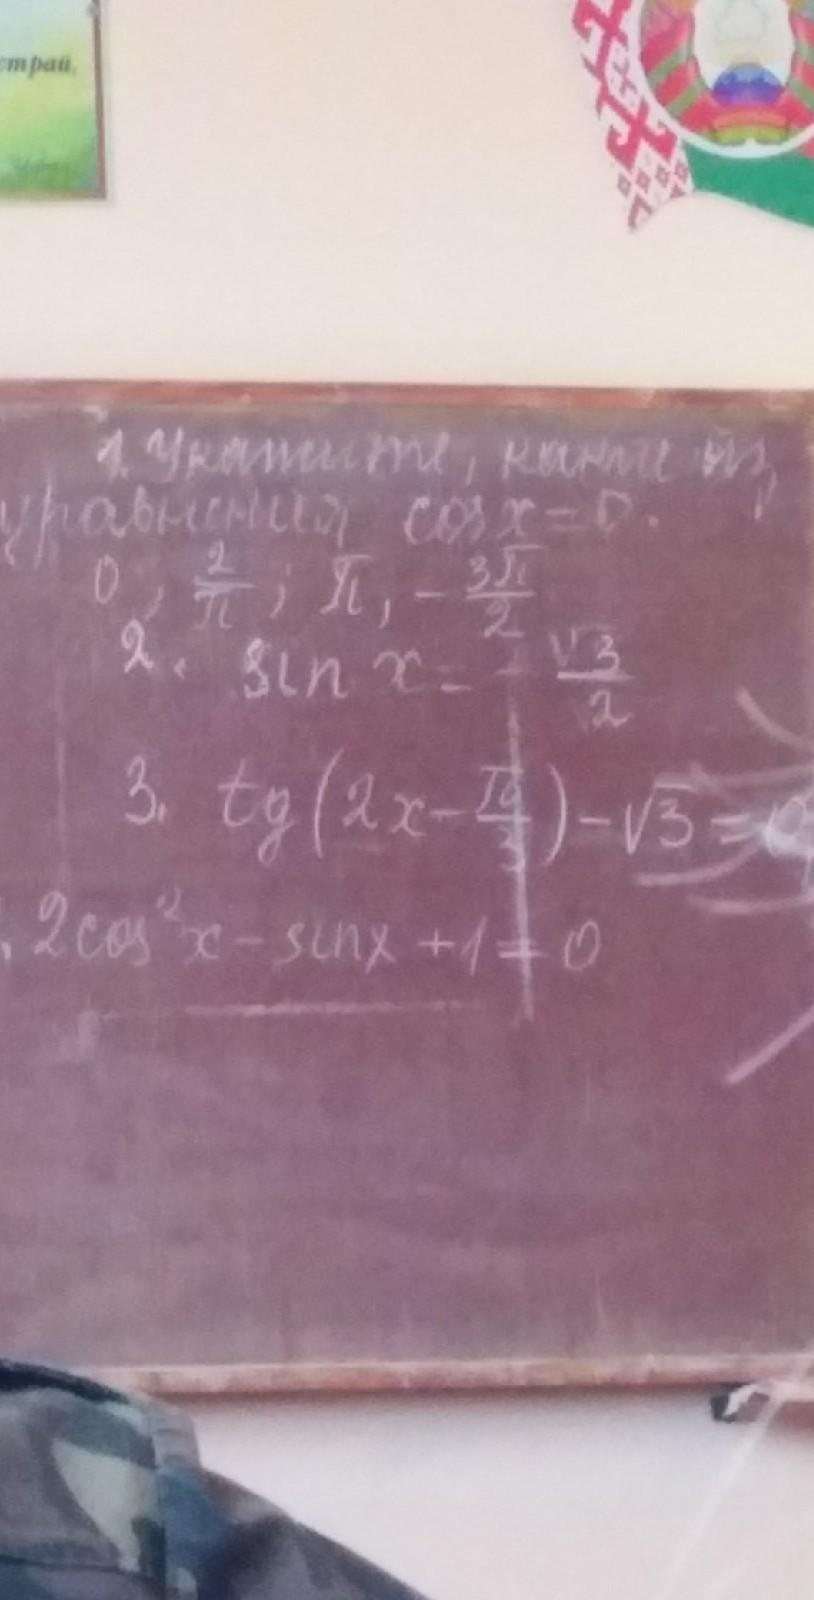 страй,
1. Укажите, какие из
уравнения cos x = 0.
0, 2/π; π, - 3π/2
2. sin x = - √3/2
3. tg(2x - π/3) - √3 = 0
. 2cos²x - sinx + 1 = 0